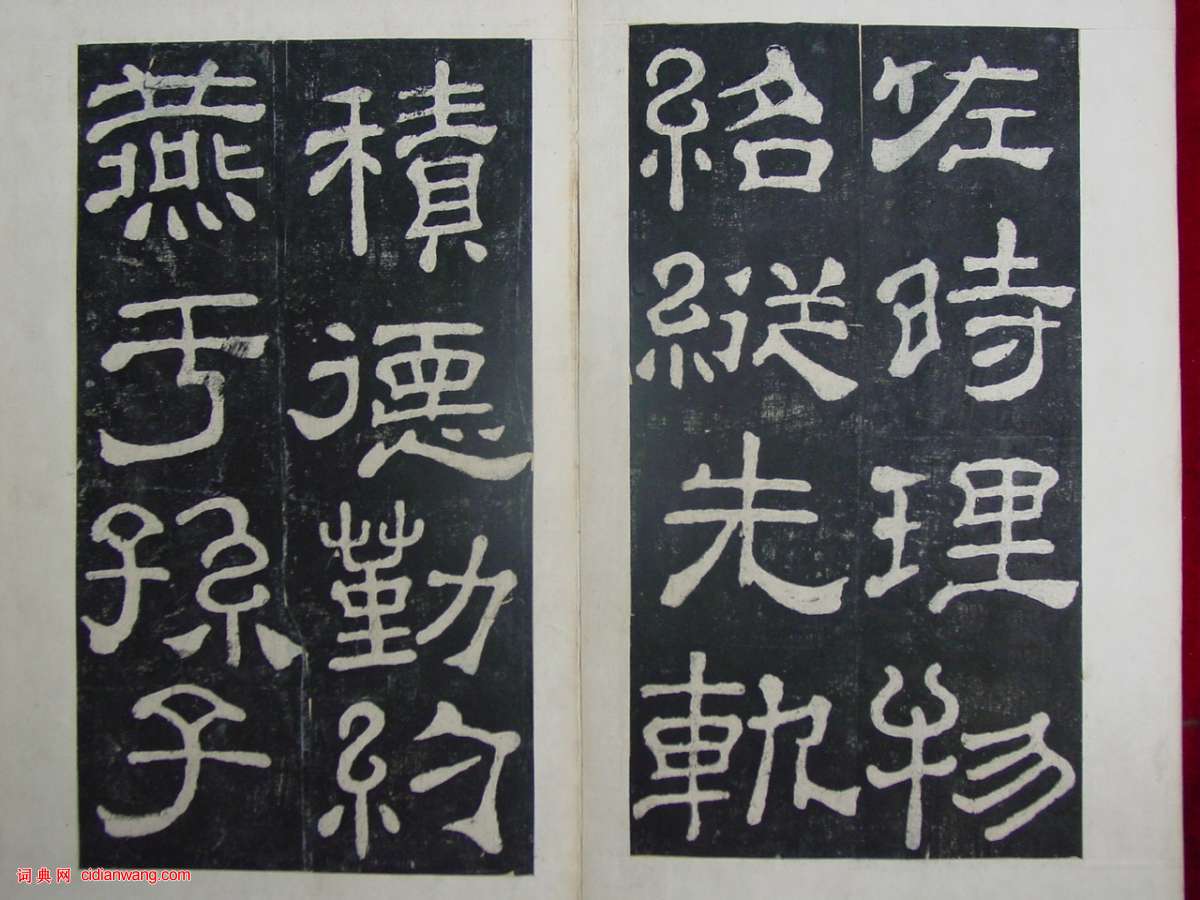 佐時理物
紹縱先軌
積德勤約
燕于孫子
词典网 cidianwang.com